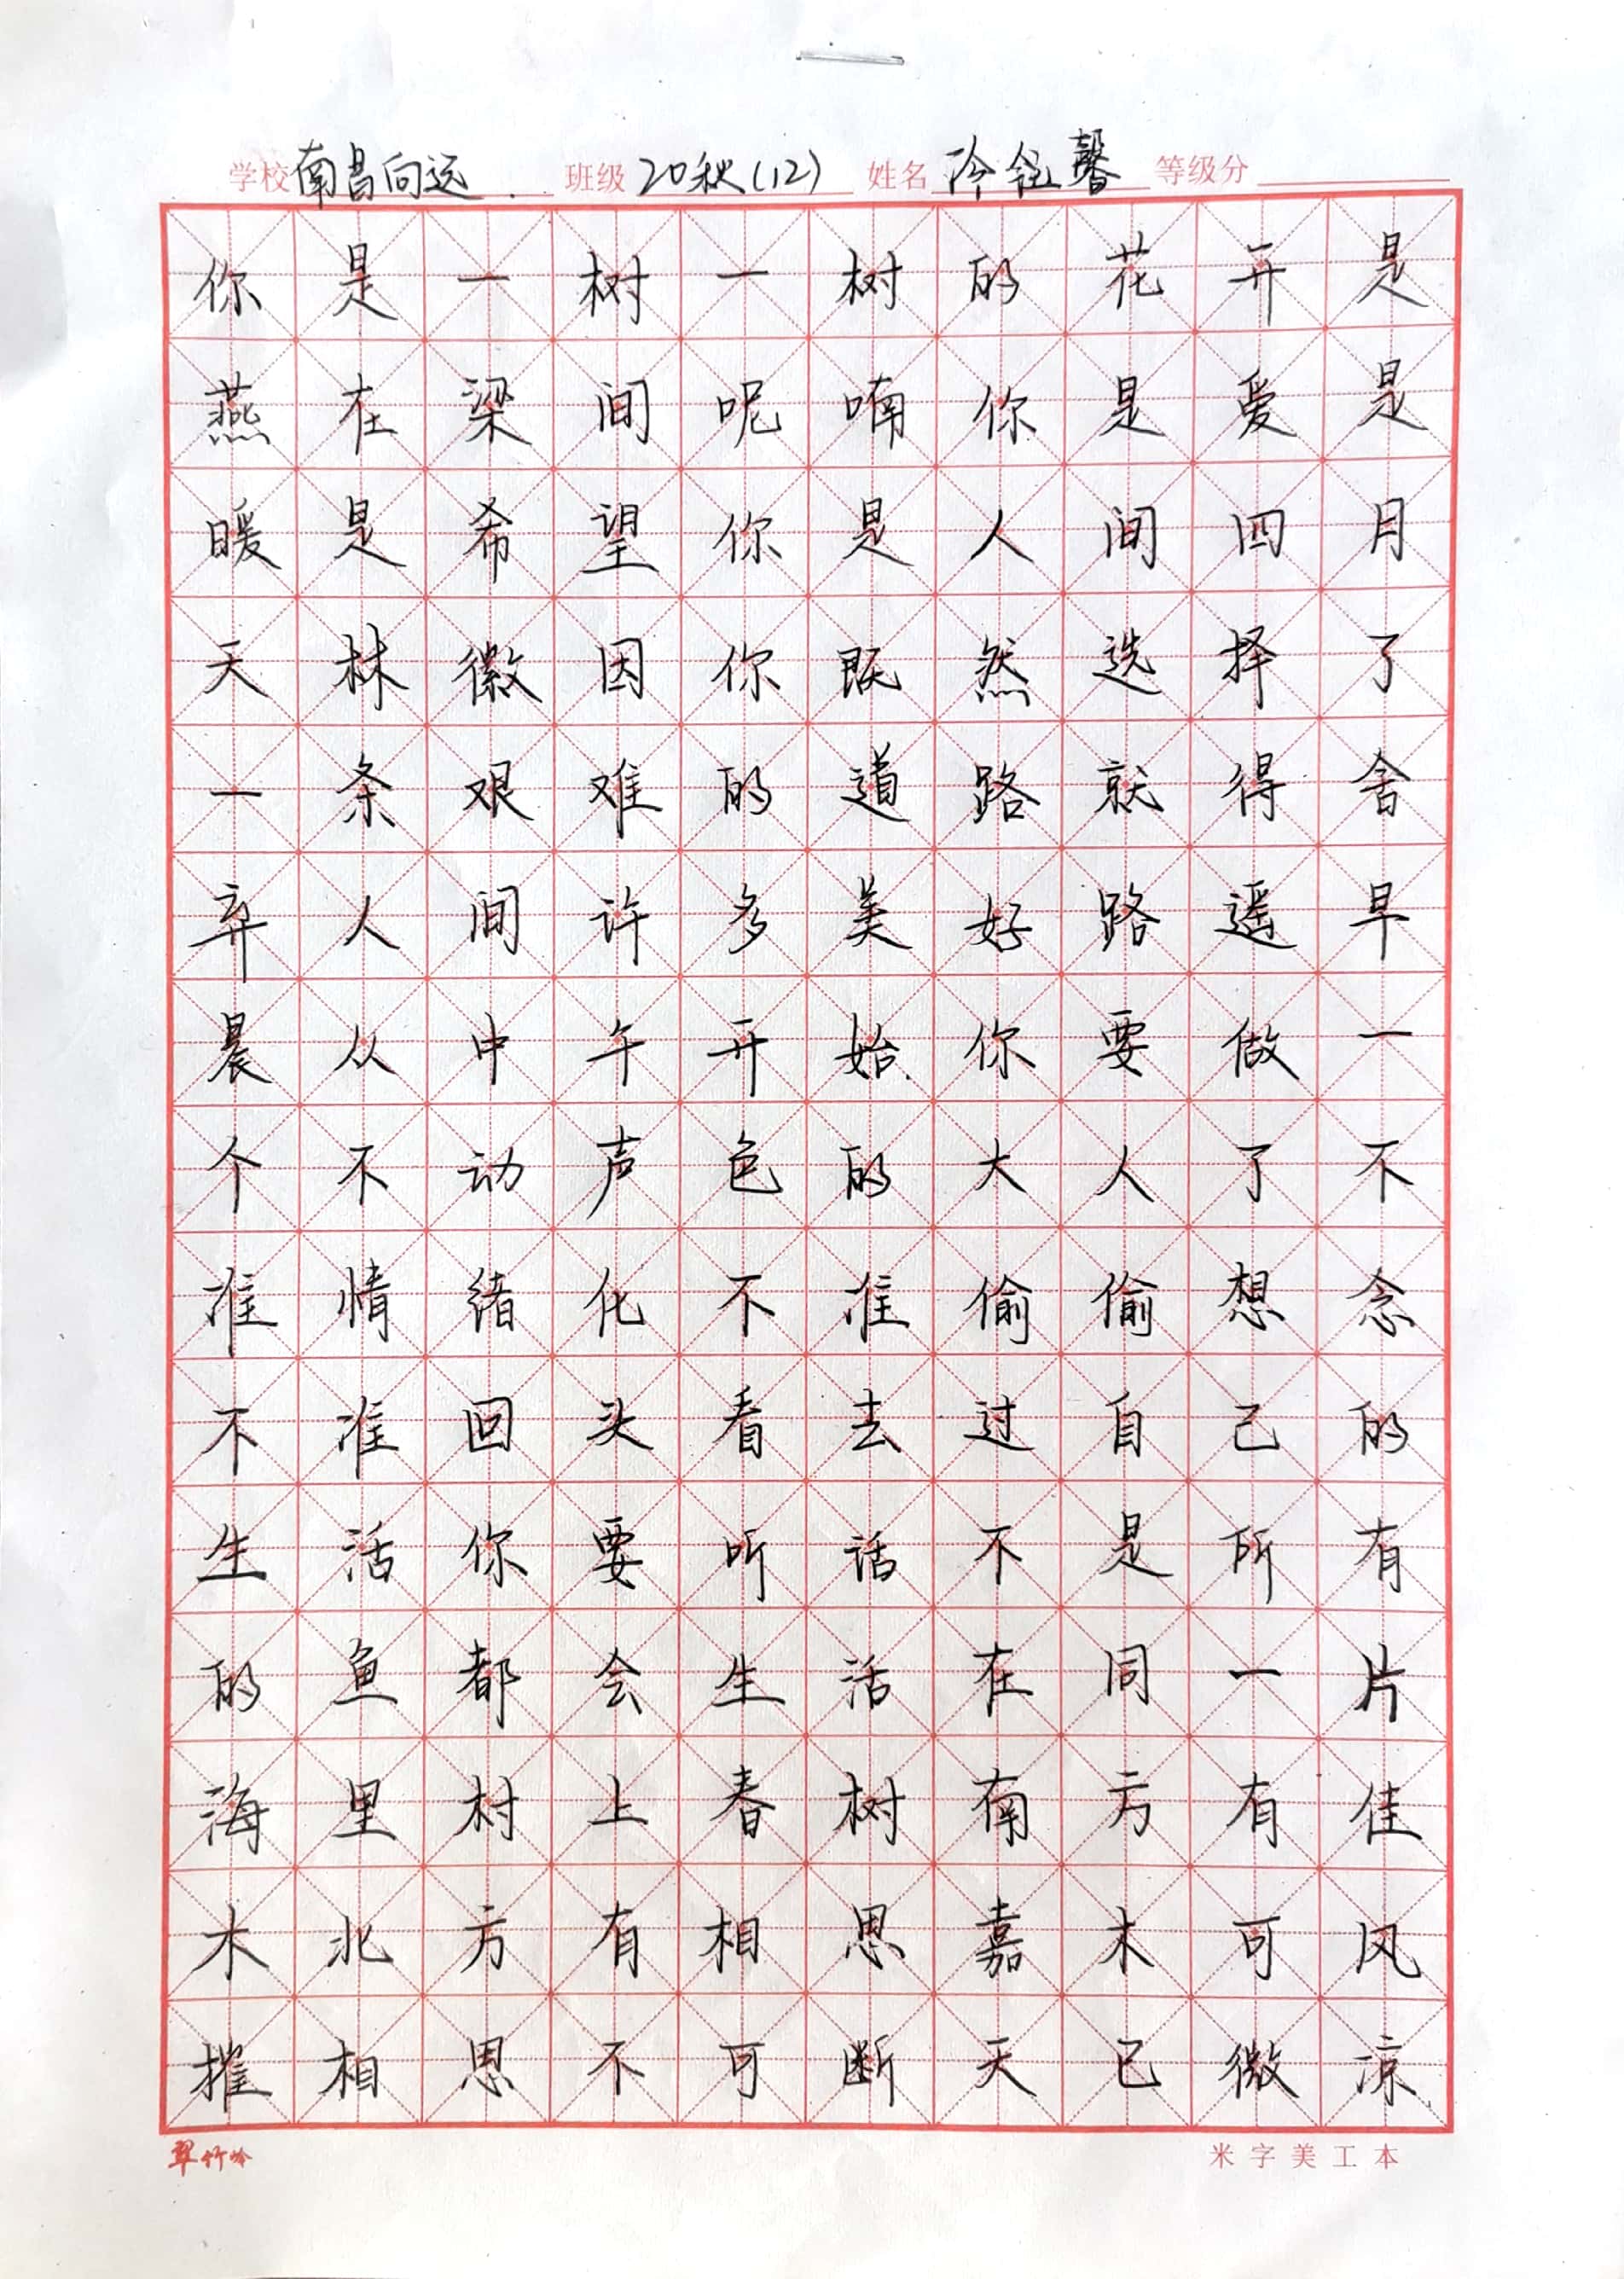 学校 南昌向远 班级 20秋(12) 姓名 冷 馨 等级分
你是一树一树的花开是
燕在梁间呢喃你是爱是
暖是希望你是人间四月
天林徽因你既然选择了
一条艰难的道路就得舍
弃人间许多美好路遥早
晨从中午开始你要做一
个不动声色的大人了不
准情绪化不准偷偷想念
不准回头看去过自己的
生活你要听话不是所有
的鱼都会生活在同一片
海里村上春树南方有佳
木北方有相思嘉木可风
摧相思不可断天已微凉
翠竹岭
米字美工本